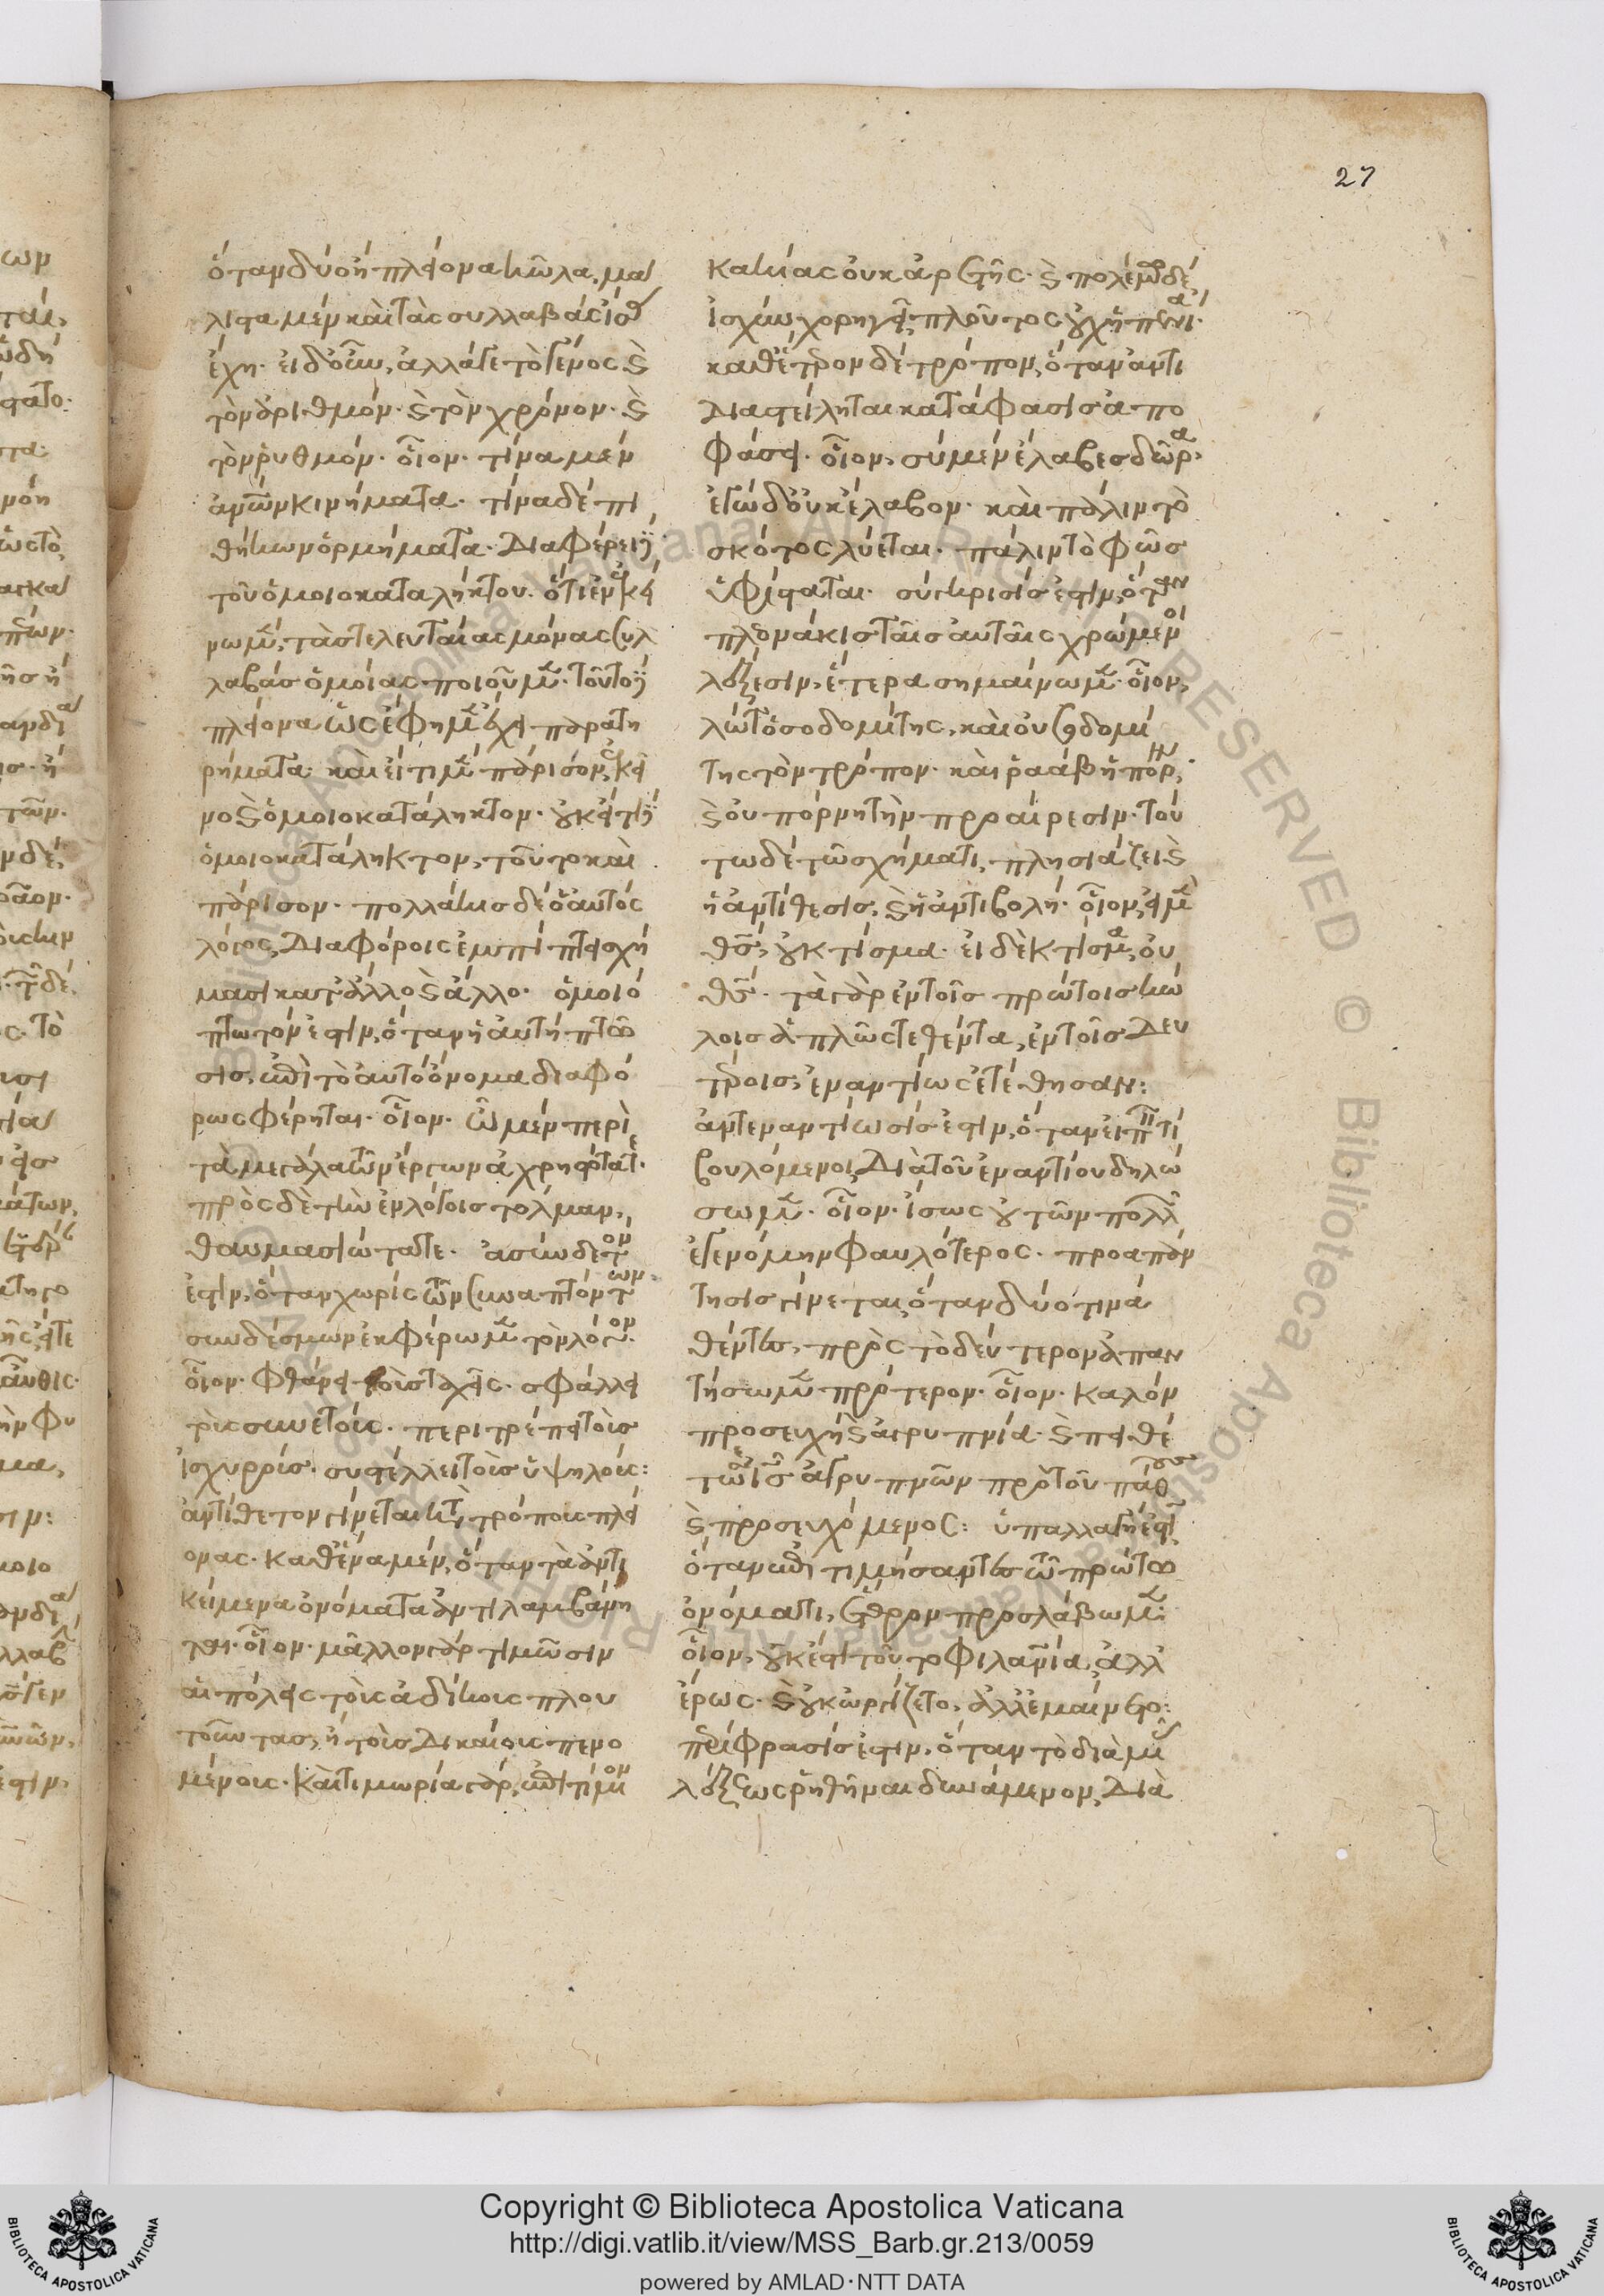 27
ὅταν δύο ἢ πλείονα κῶλα, μά
λιστα μὲν καὶ τὰς συλλαβὰς ἴσ
ἔχη. εἰ δ' οὖν, ἀλλά γε τὸ γένος καὶ
τὸν ἀριθμόν. καὶ τὸν χρόνον. καὶ
τὸν ῥυθμόν. οἷον. τίνα μὲν
ἀνῶν κινήματα. τίνα δὲ πι
θήκων ὁρμήματα. Διαφέρει
τοῦ ὁμοιοκαταλήκτου. ὅτι ἐν ἐκεί
νω μὲν, τὰς τελευταίας μόνας συλ
λαβὰς ὁμοίας ποιοῦμεν.
πλείονα ὡς ἔφημεν ἔχει παρατη
ρήματα. καὶ εἴ τι μὲν πάρισον, ἐκεῖ
νο καὶ ὁμοιοκατάληκτον. οὐκ εἴ τι
ὁμοιοκατάληκτον, τοῦτο καὶ
πάρισον. πολλάκις δὲ ὁ αὐτὸς
λόγος, Διαφόροις ἐμπίπτει σχή
μασι κατ' ἄλλο καὶ ἄλλο. ὁμοιό
πτωτόν ἐστιν, ὅταν ἡ αὐτὴ πτῶ
σις, ἐπὶ τὸ αὐτὸ ὄνομα διαφό
ρως φέρηται. οἷον. ὦ μὲν περὶ
τὰ μεγάλα τῶν ἔργων ἀχρηστότατε.
πρὸς δὲ τὴν ἐν λόγοις τόλμαν,
θαυμασιώτατε. ἀσύνδετον
ἐστιν, ὅταν χωρὶς τῶν συναπτόντων
συνδέσμων ἐκφέρωμεν τὸν λόγον.
οἷον. φθάνει τοῖς ταχεῖς. σφάλλει
τοῖς συνετοῖς. περιτρέπει τοῖς
ἰσχυροῖς. συστέλλει τοῖς ὑψηλοῖς:
ἀντίθετον γίνεται κατὰ τρόπους πλεί
ονας. Καθ' ἕνα μὲν, ὅταν τὰ ἀντι
κείμενα ὀνόματα ἀντιλαμβάνη
ται. οἷον. μᾶλλον γὰρ τιμῶσιν
αἱ πόλεις τοῖς ἀδίκοις πλου
τοῦντας, ἢ τοῖς Δικαίοις πενο
μένοις. Καὶ τιμωρία γὰρ, ἐπιτίμιον
κακίας οὐκ ἀρετῆς. καὶ πολέμω δὲ
ἰσχὺν χορηγεῖ πλοῦτος οὐχὴ πενία.
καθ' ἕτερον δὲ τρόπον, ὅταν ἀντι
Διαστείληται κατάφασις ἀπο
φάσει. οἷον, σὺ μὲν ἔλαβες δῶρα,
ἐγὼ δ' οὐκ ἔλαβον. καὶ πάλιν τὸ
σκότος λύεται. πάλιν τὸ φῶς
ὑφίσταται. σύγκρισίς ἐστιν, ὅταν
πλεονάκις ταῖς αὐταῖς χρώμενοι
λέξεσιν, ἕτερα σημαίνωμεν. οἷον,
λὼτ ὁ σοδομίτης, καὶ οὐ σοδομί
της τὸν τρόπον. καὶ ῥαὰβ ἡ πόρνη,
καὶ οὐ πόρνη τὴν προαίρεσιν. τού
τω δὲ τῶ σχήματι, πλησιάζει καὶ
ἡ ἀντίθεσις, καὶ ἡ ἀντιβολή. οἷον, εἰ μὲν
θς, οὐ κτίσμα. εἰ δὲ κτίσμα, οὐ
θς. τὰ γὰρ ἐν τοῖς πρώτοις κώ
λοις ἁπλῶς τεθέντα, ἐν τοῖς Δευ
τέροις, ἐναντίως ἐτέθησαν:
ἀντεναντίωσίς ἐστιν, ὅταν εἰπεῖν τι
βουλόμενοι, Διὰ τοῦ ἐναντίου δηλώ
σωμεν. οἷον. ἴσως οὐ τῶν πολλ
ἐγενόμην φαυλότερος. προαπάν
τησις γίνεται, ὅταν δύο τινὰ
θέντες, πρὸς τὸ δεύτερον ἀπαν
τήσωμεν πρότερον. οἷον. καλὸν
προσευχὴ καὶ ἀγρυπνία. καὶ πειθέ
ἀγρυπνῶν πρὸ τοῦ πάθους
καὶ προσευχόμενος: ὑπαλλαγή ἐστι
ὅταν ἐπιτιμήσαντες τῶ πρώτω
ὀνόματι, ἕτερον προσλάβωμεν
οἷον, οὐκ ἔστι τοῦτο φιλανία, ἀλλ'
ἔρως. καὶ οὐκ ὠργίζετο, ἀλλ' ἐμαίνετο:
περίφρασίς ἐστιν, ὅταν τὸ διὰ μιᾶς
λέξεως ῥηθῆναι δυνάμενον, Διὰ
Copyright © Biblioteca Apostolica Vaticana
http://digi.vatlib.it/view/MSS_Barb.gr.213/0059
powered by AMLAD·NTT DATA